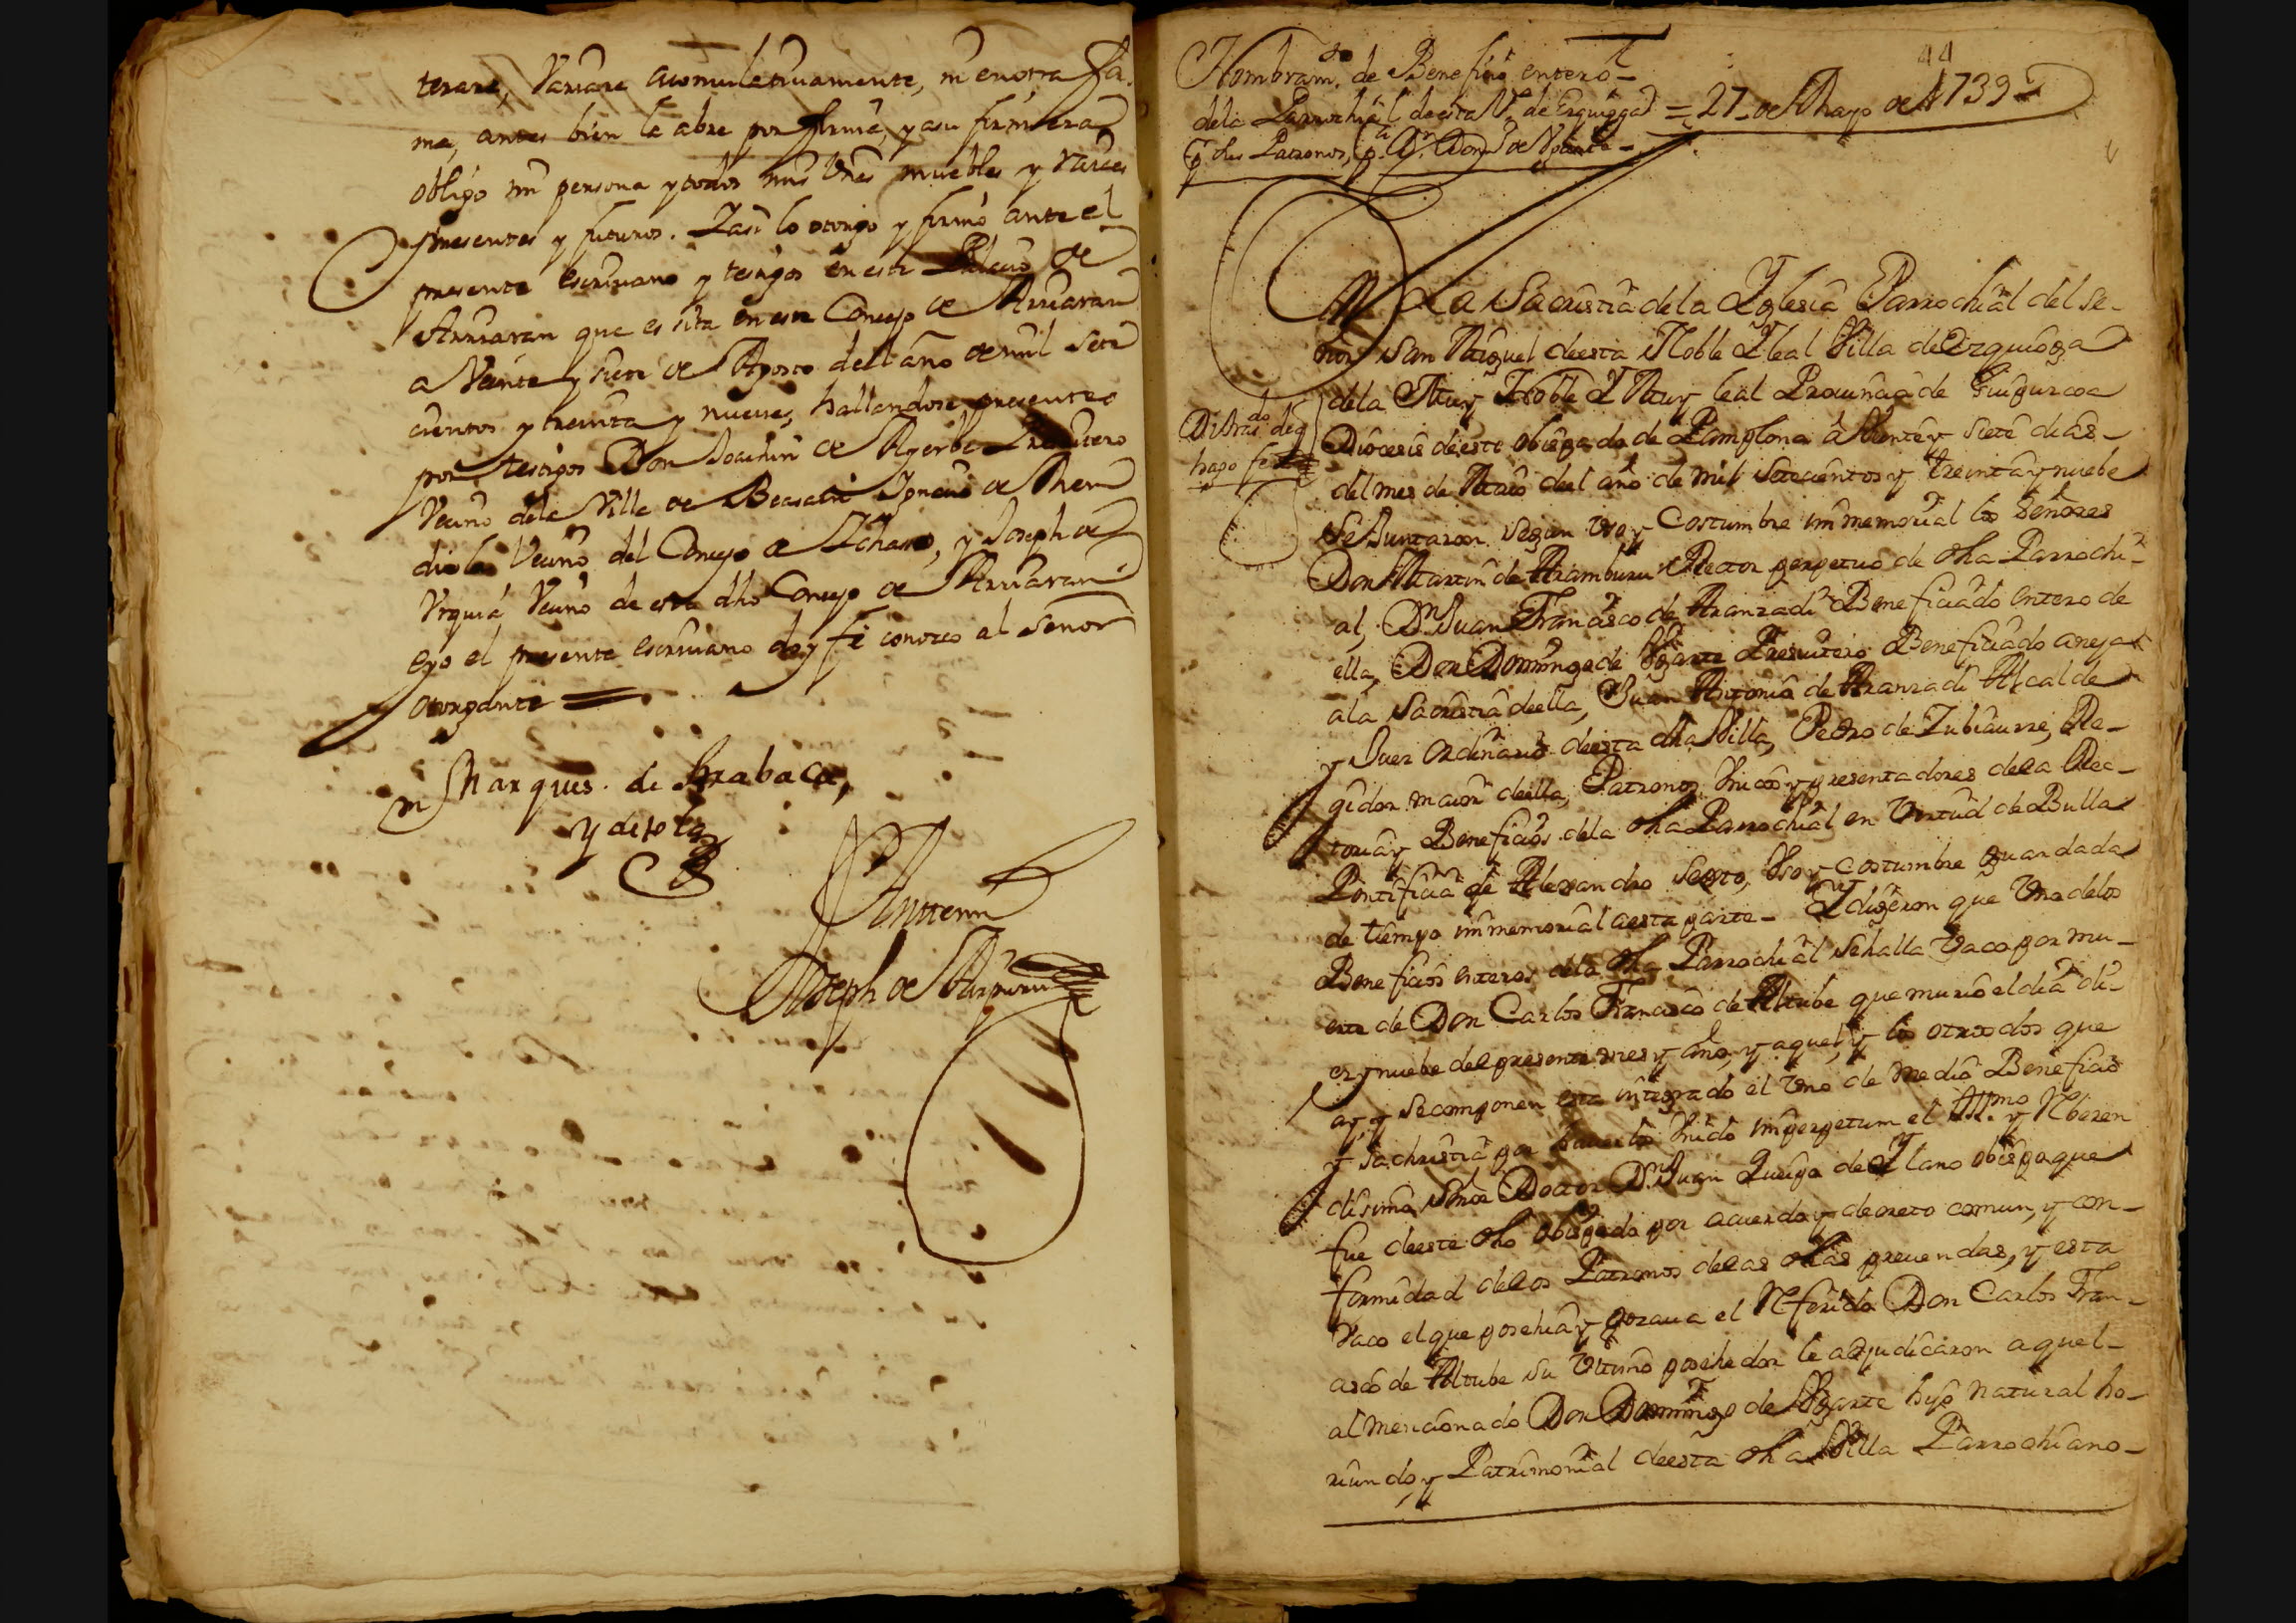 terare, Variare acomulatiuamente, ni en otra for
ma, antes bien le abre por firme, y a su firmeza
obligo mi persona y todos mis Vnes muebles y raices
presentes y futuros. Y asi lo otorgo y firmo ante el
presente escriuano y testigos en este Palacio de
Arriaran que es sita en este Concejo de Arriaran
a Veinte y siete de Agosto del año de mil sete
cientos y treinta y nueve, hallandose presentes
por testigos Don Joachin de Ayerbe Presuitero
Vecino dela Villa de Beasain Ignacio de Men
diola Vecino del Concejo de Ichaso, y Joseph de
Vrquia Vecino de este dho Concejo de Arriaran
e yo el presente escriuano doy fe conozco al señor
otorgante =
Marques. de
y de
Antte mi
Joseph de
44
Nombram.to de Benefiçio entero
dela Parrochial de esta V.a de Ezquioga = 27 de Mayo de 1739
p.r dhos Patronos, p.a D.n Dom.o de Vgarte
En La Sacristia de la Yglesia Parrochial del Se-
ñor San Miguel de esta Noble Y leal Villa de Ezquioga
dela Muy Noble Y Muy leal Prouincia de Guipuzcoa
hago fe
Diocesis de este obispado de Pamplona â Veinte y siete dias
del mes de Maio del año de mil setecientos y treinta y nuebe
Se Juntaron segun vso y Costumbre immemorial los Señores
Don Martin de Aramburu Rector perpetuo de dha Parrochi-
al, D.n Juan Francisco de Aranzadi Beneficiado entero de
ella, Don Domingo de Vgarte Presuitero Beneficiado anejo
a la Sacristia de ella, Juan Antonio de Aranzadi Alcalde
y Juez ordinario de esta dha Villa, Pedro de Zubiaurre, Re-
gidor maior de ella, Patronos Vnicos y presentadores dela Rec-
toria y Beneficios dela dha Parrochial en Virtud de Bulla
Pontificia de Alexandro Sexto, Vso y costumbre guardada
de tiempo immemorial a esta parte- Y dixeron que Vno delos
Beneficios enteros dela dha Parrochial se halla Vaco por mu-
erte de Don Carlos Francisco de Altube que murio el dia di-
ez y nuebe del presente mes y año, y aquel, y los otros dos que
ay y se componen esta integrado el Vno de medio Beneficio
y Sachristia por hauerlos Vnido imperpetum el Ill.mo y Reberen
disimo Señor Doctor D.n Juan Queipo de Llano obispo que
fue de este dho obispado por acuerdo y decreto comun, y con-
formidad delos Patronos delas dhas preuendas, y esta
Vaco el que posehia y gozaua el Referido Don Carlos Fran-
cisco de Altube su Vltimo posehedor le adjudicaron aquel
al mencionado Don Domingo de Vgarte hijo natural ho-
riundo, y Patrimonial de esta dha Villa Parrochiano